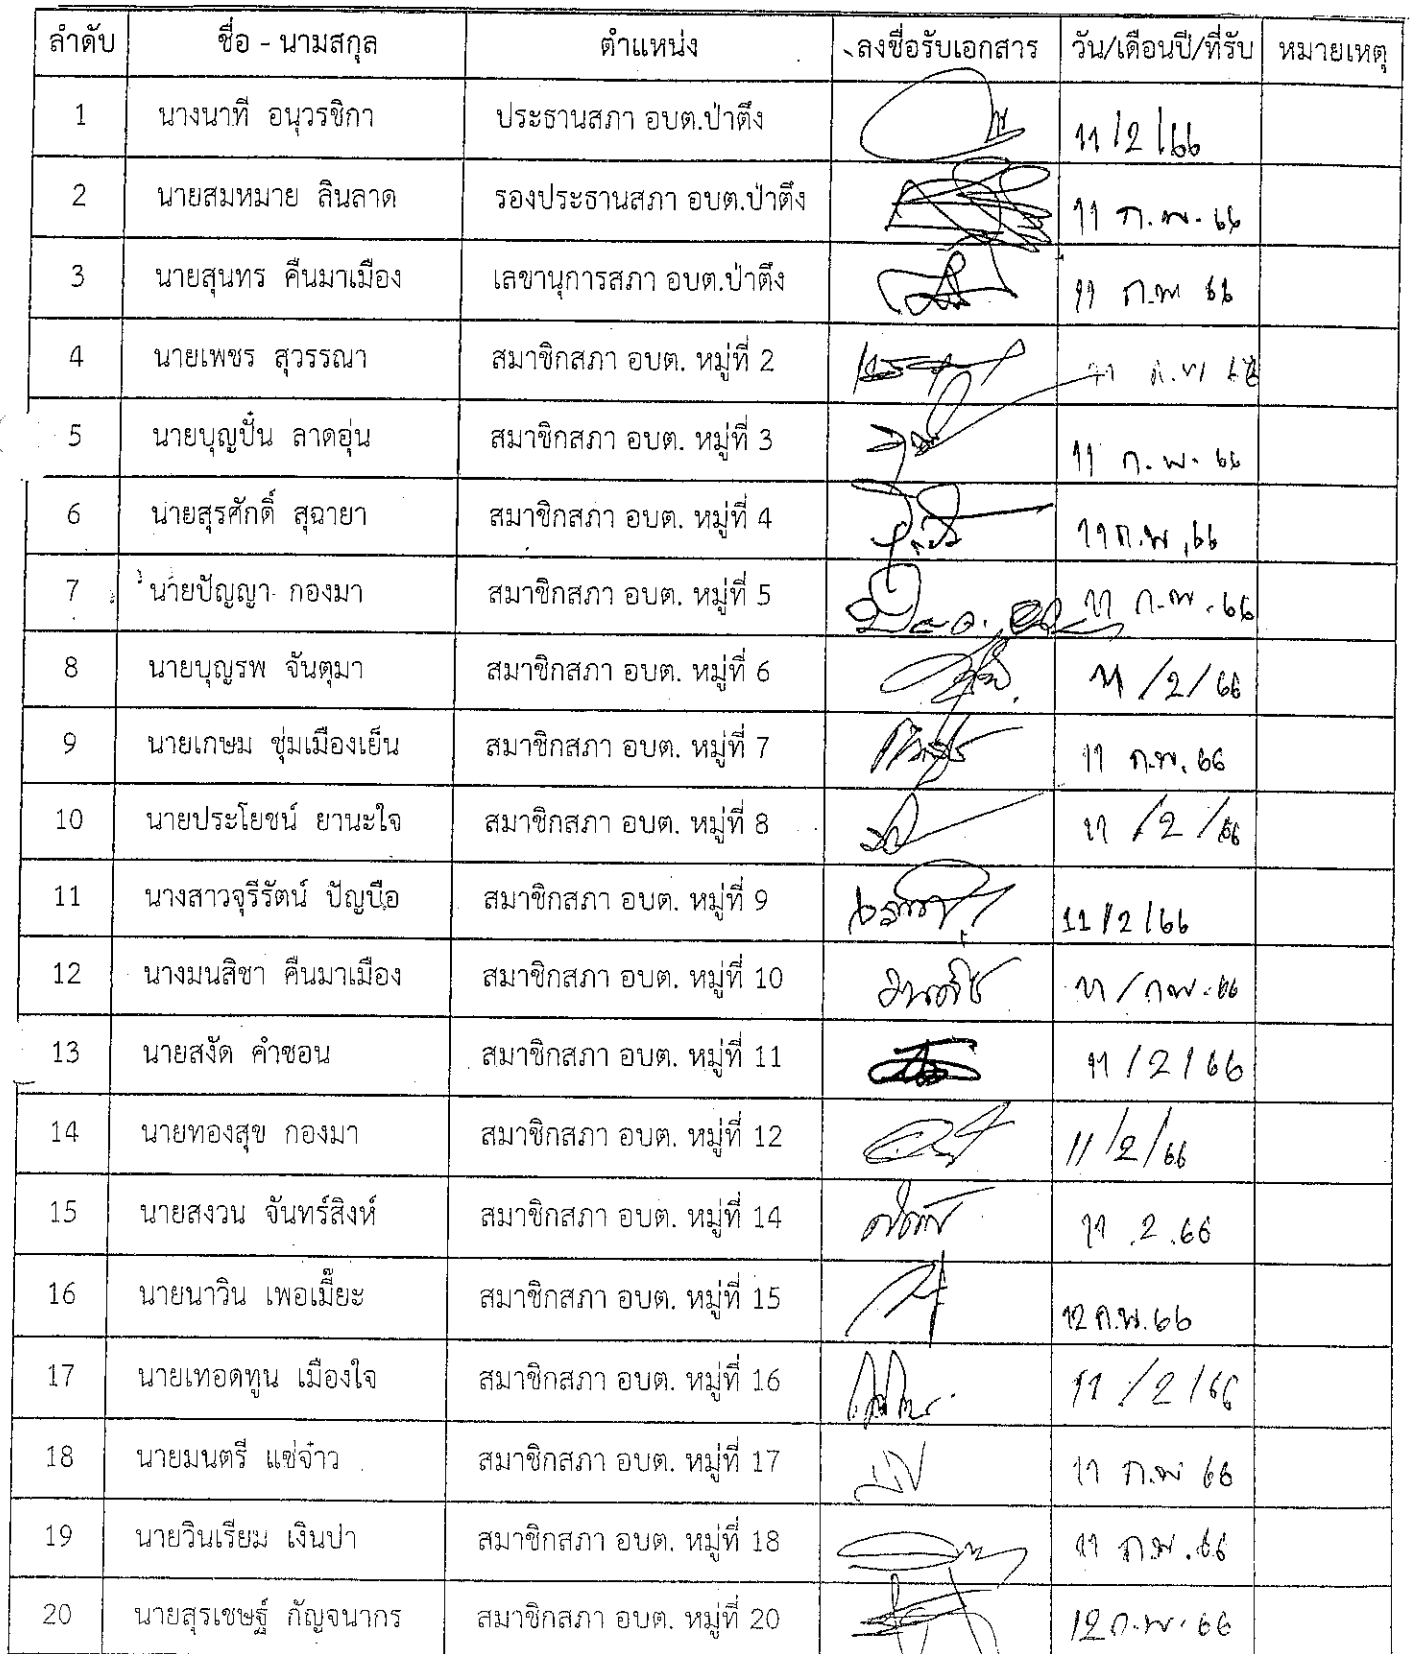 ลำดับ ชื่อ - นามสกุล ตำแหน่ง ลงชื่อรับเอกสาร วัน/เดือนปี/ที่รับ หมายเหตุ
1 นางนาที อนุวรชิกา ประธานสภา อบต.ป่าตึง 11/2/66
2 นายสมหมาย ลินลาด รองประธานสภา อบต.ป่าตึง 11 ก.พ. 66
3 นายสุนทร คืนมาเมือง เลขานุการสภา อบต.ป่าตึง 11 ก.พ 66
4 นายเพชร สุวรรณา สมาชิกสภา อบต. หมู่ที่ 2 11 ก.พ
5 นายบุญปั๋น ลาดอุ่น สมาชิกสภา อบต. หมู่ที่ 3 11 ก.พ. 66
6 นายสุรศักดิ์ สุฉายา สมาชิกสภา อบต. หมู่ที่ 4 11 ก.พ. 66
7 นายปัญญา กองมา สมาชิกสภา อบต. หมู่ที่ 5 11 ก.พ. 66
8 นายบุญรพ จันตุมา สมาชิกสภา อบต. หมู่ที่ 6 11/2/66
9 นายเกษม ชุ่มเมืองเย็น สมาชิกสภา อบต. หมู่ที่ 7 11 ก.พ. 66
10 นายประโยชน์ ยานะใจ สมาชิกสภา อบต. หมู่ที่ 8 11/2/66
11 นางสาวจุรีรัตน์ ปัญบือ สมาชิกสภา อบต. หมู่ที่ 9 11/2/66
12 นางมนสิชา คืนมาเมือง สมาชิกสภา อบต. หมู่ที่ 10 11/กพ.66
13 นายสงัด คำซอน สมาชิกสภา อบต. หมู่ที่ 11 11/2/66
14 นายทองสุข กองมา สมาชิกสภา อบต. หมู่ที่ 12 11/2/66
15 นายสงวน จันทร์สิงห์ สมาชิกสภา อบต. หมู่ที่ 14 11.2.66
16 นายนาวิน เพอเมี๊ยะ สมาชิกสภา อบต. หมู่ที่ 15 12 ก.พ.66
17 นายเทอดทูน เมืองใจ สมาชิกสภา อบต. หมู่ที่ 16 11/2/66
18 นายมนตรี แซ่จ๋าว สมาชิกสภา อบต. หมู่ที่ 17 11 ก.พ 66
19 นายวินเรียม เงินปา สมาชิกสภา อบต. หมู่ที่ 18 11 ก.พ.66
20 นายสุรเชษฐ์ กัญจนากร สมาชิกสภา อบต. หมู่ที่ 20 12 ก.พ. 66